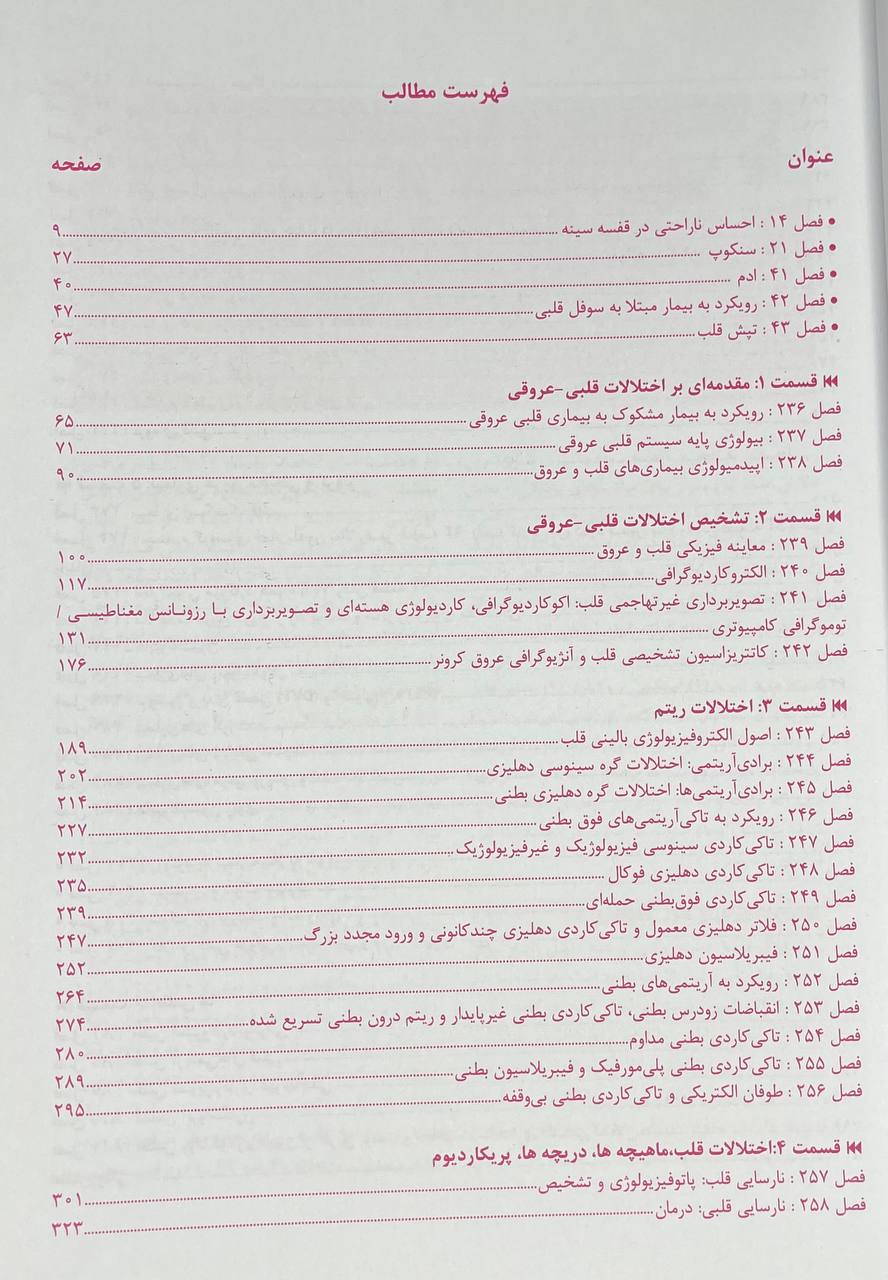 فهرست مطالب
عنوان صفحه
• فصل ۱۴ : احساس ناراحتی در قفسه سینه ........ ۹
• فصل ۲۱ : سنکوپ ........ ۲۷
• فصل ۴۱ : ادم ........ ۴۰
• فصل ۴۲ : رویکرد به بیمار مبتلا به سوفل قلبی ........ ۴۷
• فصل ۴۳ : تپش قلب ........ ۶۳
⏮ قسمت ۱: مقدمه‌ای بر اختلالات قلبی-عروقی
فصل ۲۳۶ : رویکرد به بیمار مشکوک به بیماری قلبی عروقی ........ ۶۵
فصل ۲۳۷ : بیولوژی پایه سیستم قلبی عروقی ........ ۷۱
فصل ۲۳۸ : اپیدمیولوژی بیماری‌های قلب و عروق ........ ۹۰
⏮ قسمت ۲: تشخیص اختلالات قلبی-عروقی
فصل ۲۳۹ : معاینه فیزیکی قلب و عروق ........ ۱۰۰
فصل ۲۴۰ : الکتروکاردیوگرافی ........ ۱۱۷
فصل ۲۴۱ : تصویربرداری غیرتهاجمی قلب: اکوکاردیوگرافی، کاردیولوژی هسته‌ای و تصویربرداری با رزونانس مغناطیسی /
توموگرافی کامپیوتری ........ ۱۳۱
فصل ۲۴۲ : کاتتریزاسیون تشخیصی قلب و آنژیوگرافی عروق کرونر ........ ۱۷۶
⏮ قسمت ۳: اختلالات ریتم
فصل ۲۴۳ : اصول الکتروفیزیولوژی بالینی قلب ........ ۱۸۹
فصل ۲۴۴ : برادی‌آریتمی: اختلالات گره سینوسی دهلیزی ........ ۲۰۲
فصل ۲۴۵ : برادی‌آریتمی‌ها: اختلالات گره دهلیزی بطنی ........ ۲۱۴
فصل ۲۴۶ : رویکرد به تاکی‌آریتمی‌های فوق بطنی ........ ۲۲۷
فصل ۲۴۷ : تاکی‌کاردی سینوسی فیزیولوژیک و غیرفیزیولوژیک ........ ۲۳۲
فصل ۲۴۸ : تاکی‌کاردی دهلیزی فوکال ........ ۲۳۵
فصل ۲۴۹ : تاکی‌کاردی فوق‌بطنی حمله‌ای ........ ۲۳۹
فصل ۲۵۰ : فلاتر دهلیزی معمول و تاکی‌کاردی دهلیزی چندکانونی و ورود مجدد بزرگ ........ ۲۴۷
فصل ۲۵۱ : فیبریلاسیون دهلیزی ........ ۲۵۲
فصل ۲۵۲ : رویکرد به آریتمی‌های بطنی ........ ۲۶۴
فصل ۲۵۳ : انقباضات زودرس بطنی، تاکی‌کاردی بطنی غیرپایدار و ریتم درون بطنی تسریع شده ........ ۲۷۴
فصل ۲۵۴ : تاکی‌کاردی بطنی مداوم ........ ۲۸۰
فصل ۲۵۵ : تاکی‌کاردی بطنی پلی‌مورفیک و فیبریلاسیون بطنی ........ ۲۸۹
فصل ۲۵۶ : طوفان الکتریکی و تاکی‌کاردی بطنی بی‌وقفه ........ ۲۹۵
⏮ قسمت ۴:اختلالات قلب،ماهیچه ها، دریچه ها، پریکاردیوم
فصل ۲۵۷ : نارسایی قلب: پاتوفیزیولوژی و تشخیص ........ ۳۰۱
فصل ۲۵۸ : نارسایی قلبی: درمان ........ ۳۲۳